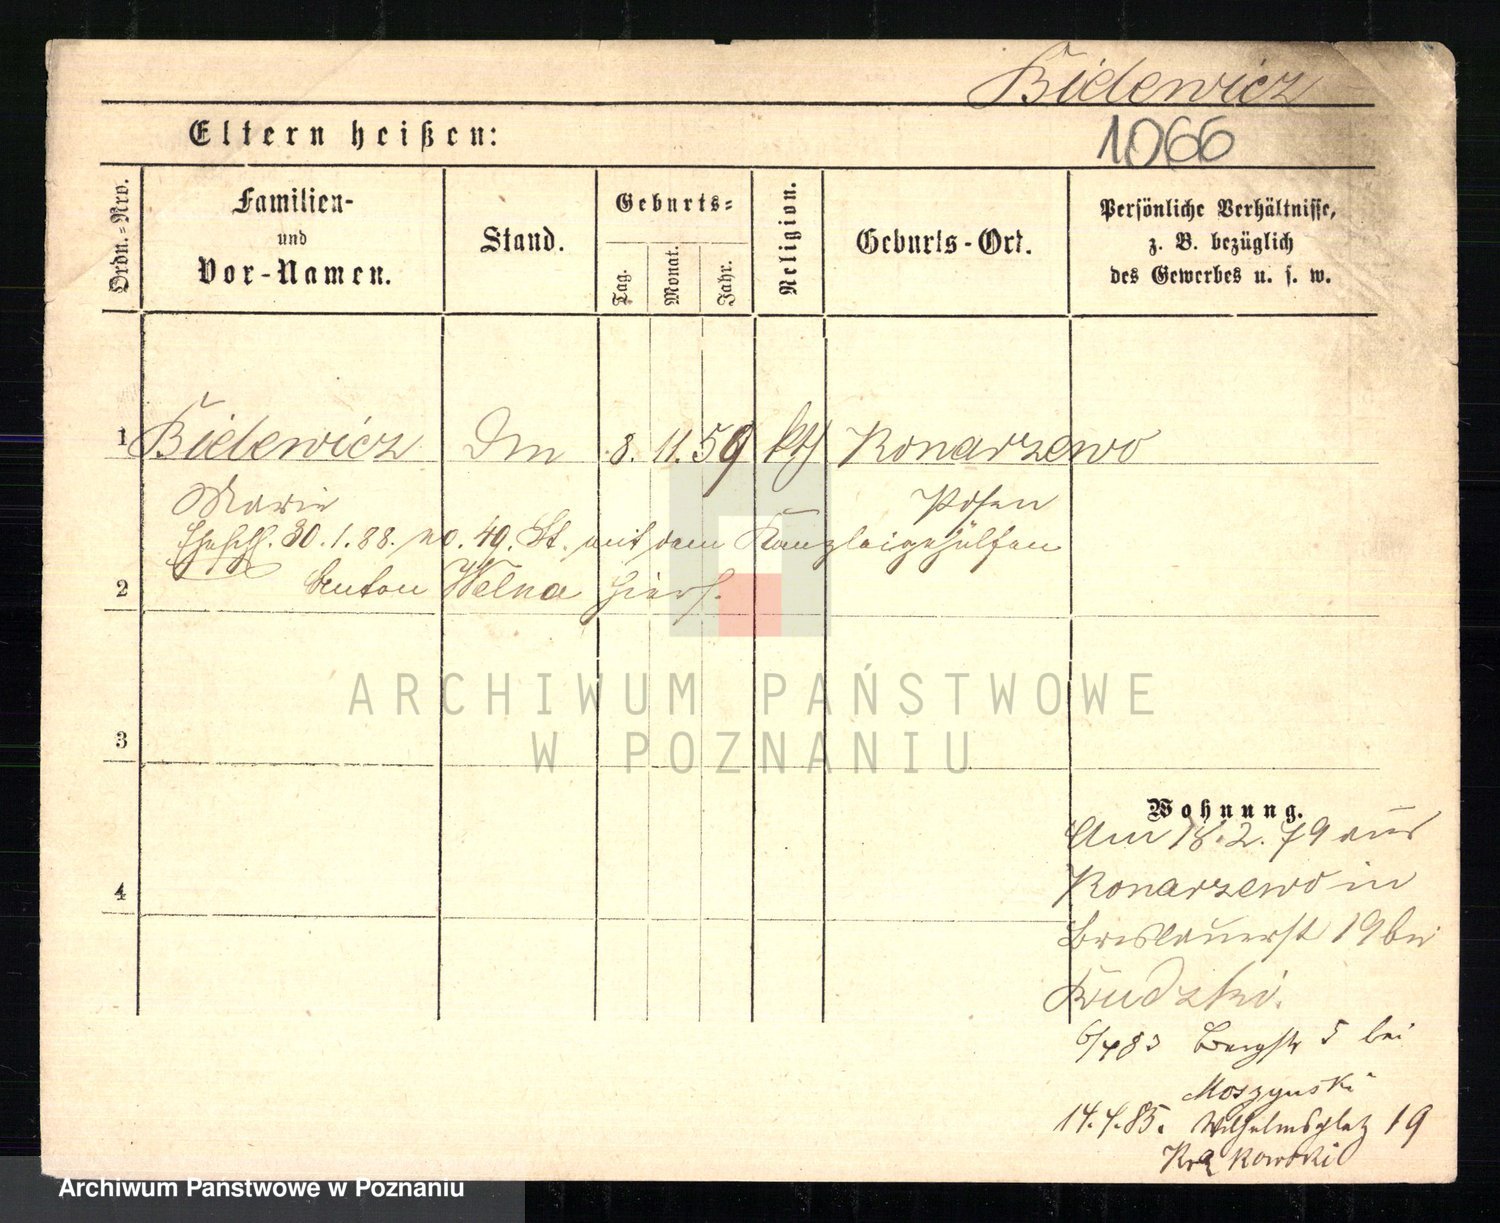 Bielewicz
Eltern heißen:
1066
Ordn.-Nro.
Familien-
und
Vor-Namen.
Stand.
Geburts-
Tag.
Monat.
Jahr.
Religion.
Geburts-Ort.
Persönliche Verhältnisse,
z. B. bezüglich
des Gewerbes u. s. w.
1 Bielewicz Dm 8. 11. 59 kth Konarzewo
Marie Posen
Ehesch. 30.1.88. No. 49. St. mit dem Kanzleigehülfen
2 Anton Welna hiers.
3
4
Wohnung.
Am 18.2.79 aus
Konarzewo in
Breslauerst 19 bei
Rudzki.
6/4 83 Bergstr 5 bei
Moszynski
14.4.85. Wilhelmsplatz 19
ARCHIWUM PAŃSTWOWE
W POZNANIU
Archiwum Państwowe w Poznaniu